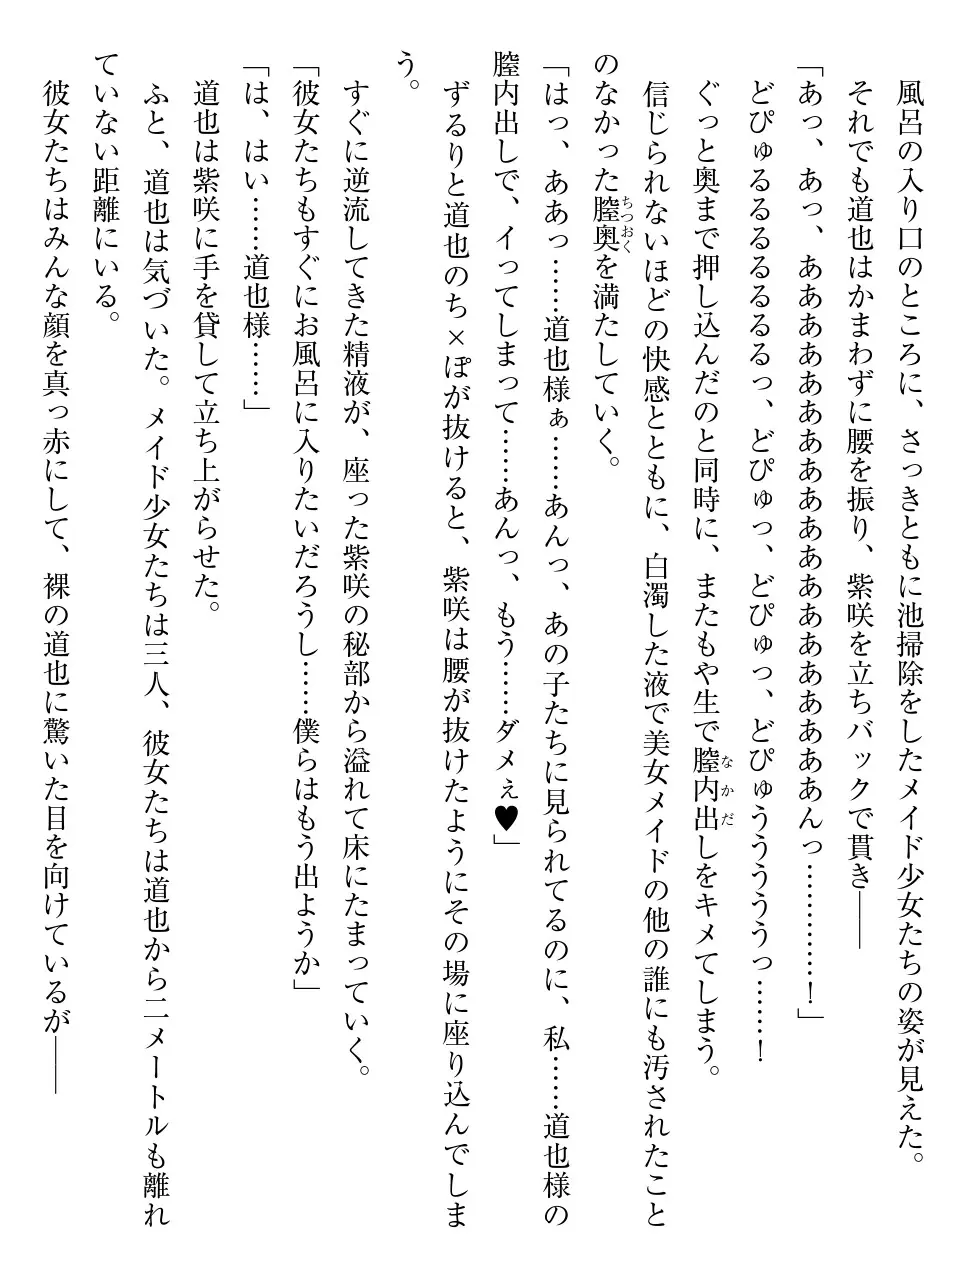 風呂の入り口のところに、さっきともに池掃除をしたメイド少女たちの姿が見えた。
それでも道也はかまわずに腰を振り、紫咲を立ちバックで貫き――
「あっ、あっ、あああああああああああああああああああんっ…………！」
どぴゅるるるるるるっ、どぴゅっ、どぴゅっ、どぴゅうううううっ……！
ぐっと奥まで押し込んだのと同時に、またもや生で膣内出しをキメてしまう。
信じられないほどの快感とともに、白濁した液で美女メイドの他の誰にも汚されたこと
のなかった膣奥を満たしていく。
「はっ、ああっ……道也様ぁ……あんっ、あの子たちに見られてるのに、私……道也様の
膣内出しで、イってしまって……あんっ、もう……ダメぇ♥」
ずるりと道也のち×ぽが抜けると、紫咲は腰が抜けたようにその場に座り込んでしま
う。
すぐに逆流してきた精液が、座った紫咲の秘部から溢れて床にたまっていく。
「彼女たちもすぐにお風呂に入りたいだろうし……僕らはもう出ようか」
「は、はい……道也様……」
道也は紫咲に手を貸して立ち上がらせた。
ふと、道也は気づいた。メイド少女たちは三人、彼女たちは道也から二メートルも離れ
ていない距離にいる。
彼女たちはみんな顔を真っ赤にして、裸の道也に驚いた目を向けているが――